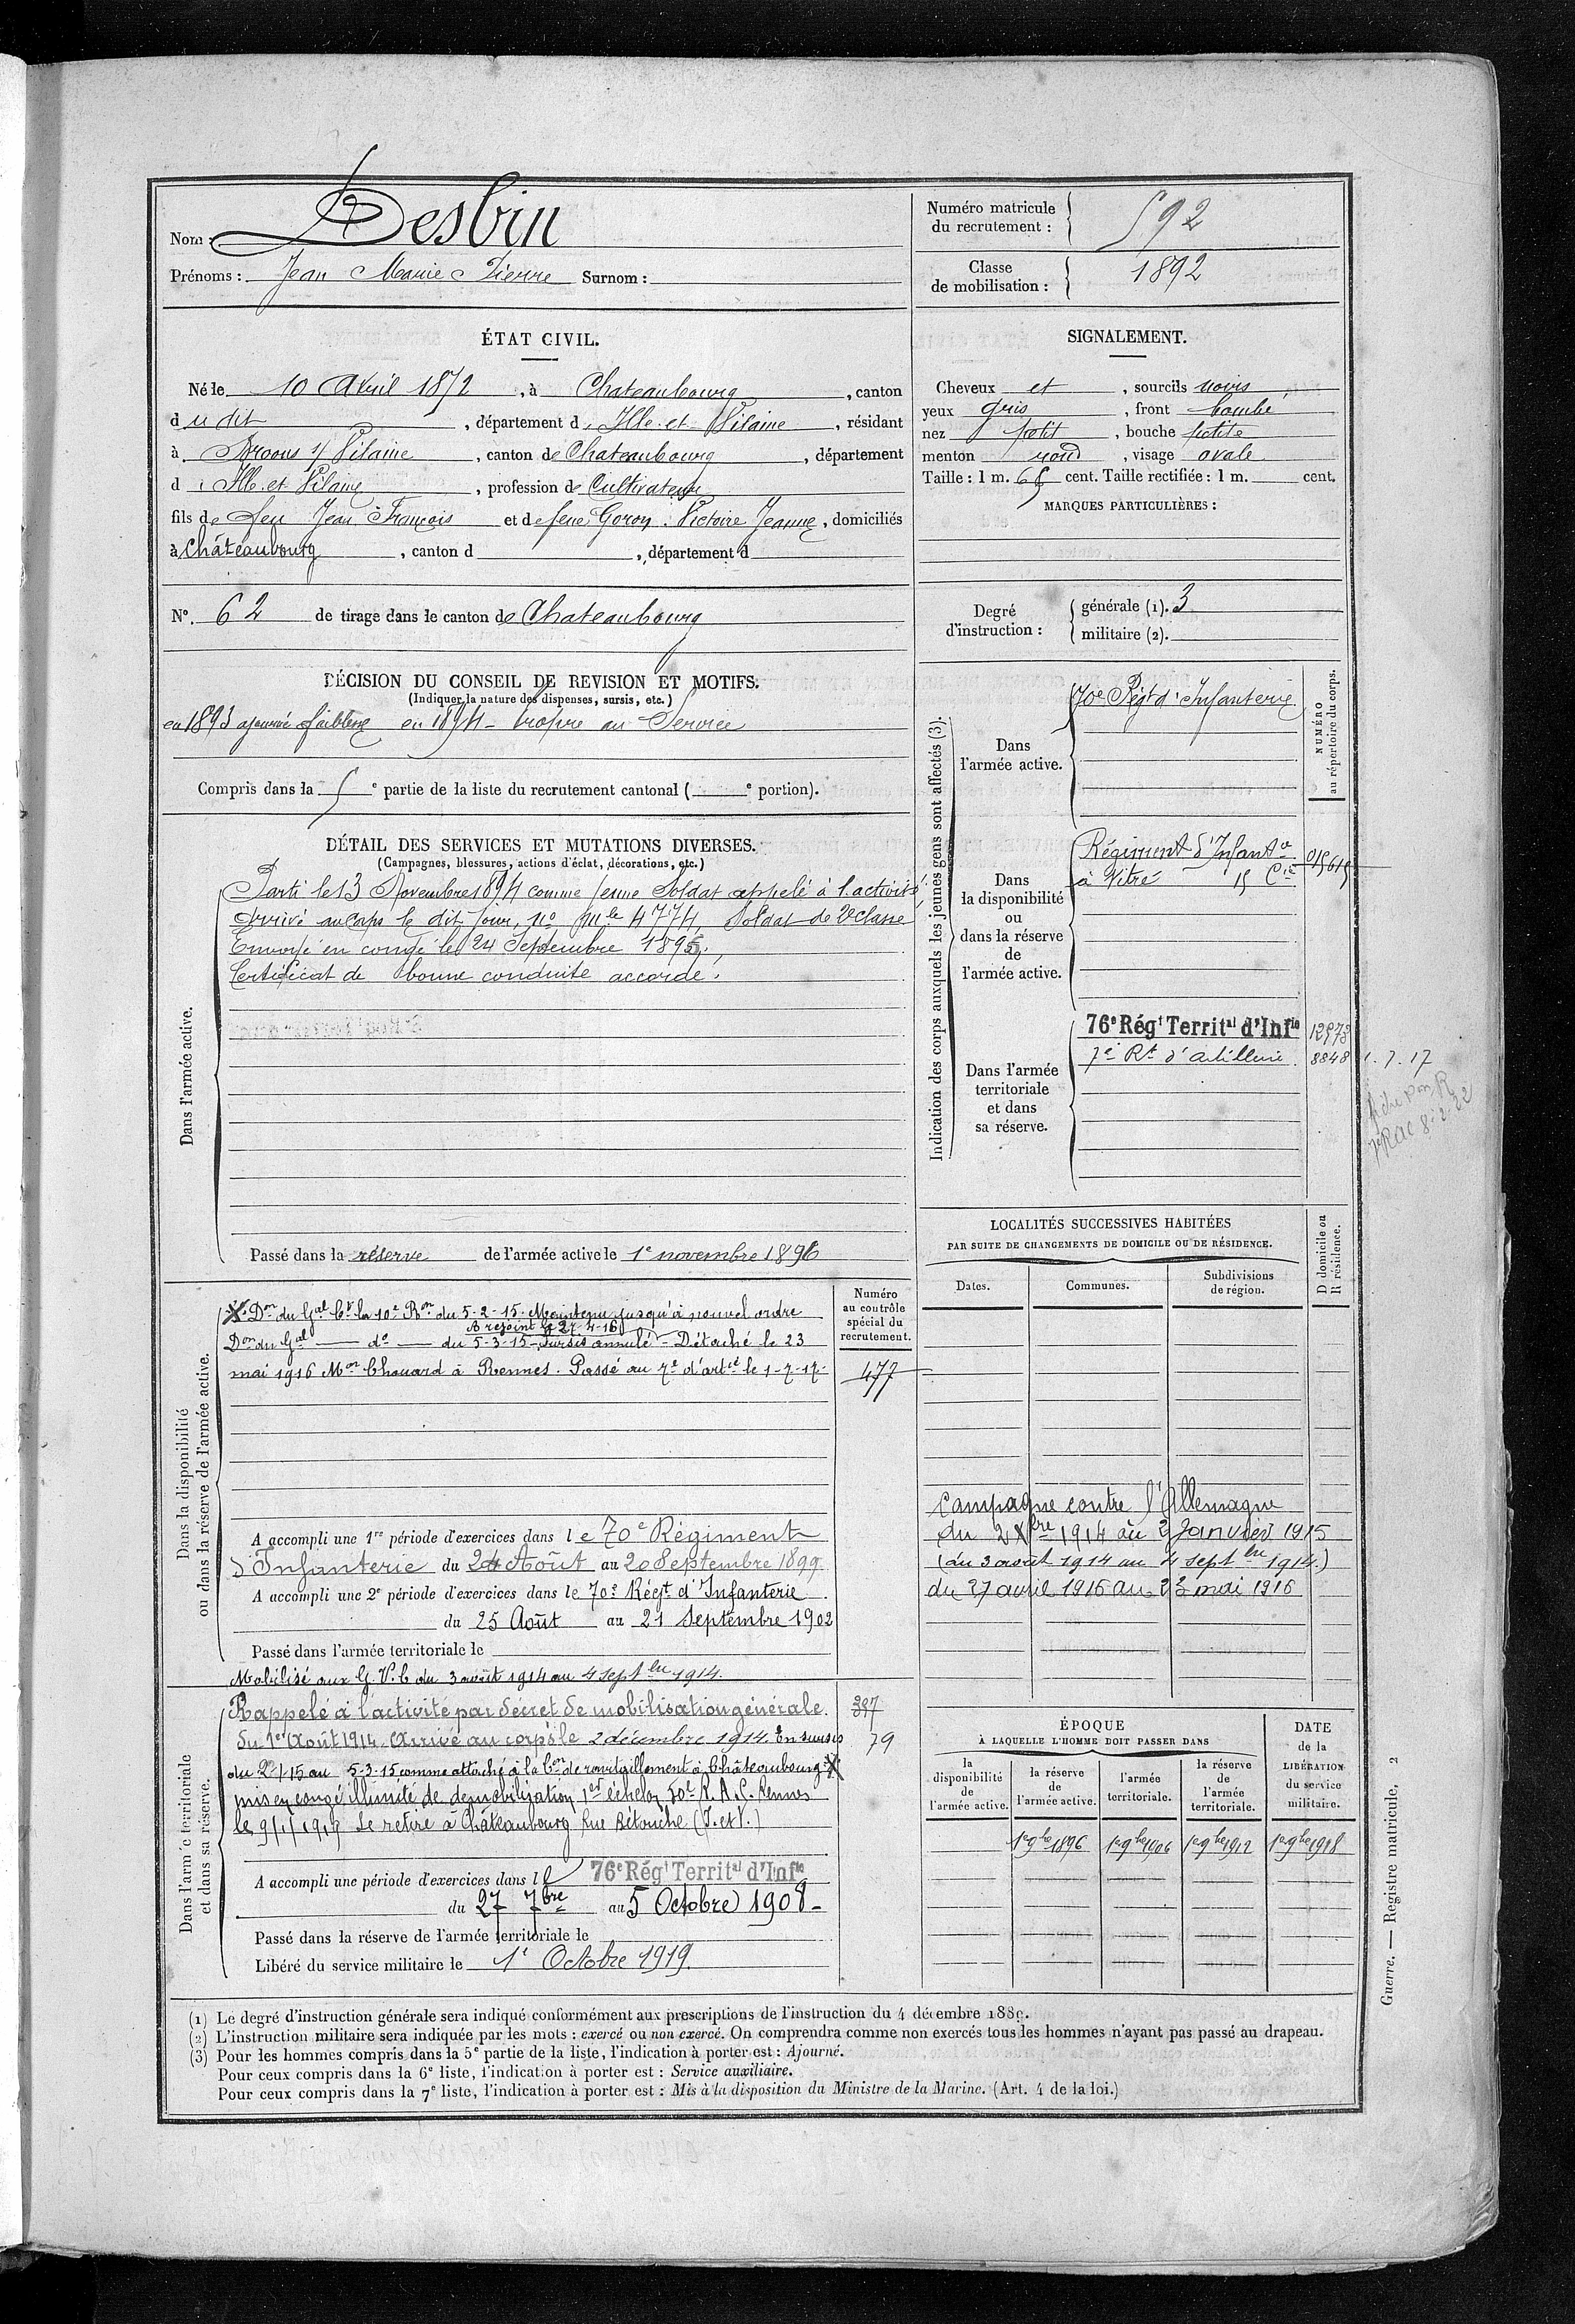 Nom : Desbin
Prénoms : Jean Marie Pierre Surnom :
Numéro matricule du recrutement : 592
Classe de mobilisation : 1892
ÉTAT CIVIL.
Né le 10 Avril 1872, à Chateaubourg, canton
du dit, département d'Ille-et-Vilaine, résidant
à Broons s/ Vilaine, canton de Chateaubourg, département
d'Ille et Vilaine, profession de Cultivateur
fils de feu Jean François et de feue Goron Victoire Jeanne, domiciliés
à Châteaubourg, canton d , département d
N° 62 de tirage dans le canton de Chateaubourg
SIGNALEMENT.
Cheveux et , sourcils noirs
yeux gris , front bombé
nez petit , bouche petite
menton rond , visage ovale
Taille : 1 m. 65 cent. Taille rectifiée : 1 m. cent.
MARQUES PARTICULIÈRES :
Degré d'instruction : générale (1). 3
militaire (2).
DÉCISION DU CONSEIL DE REVISION ET MOTIFS.
(Indiquer la nature des dispenses, sursis, etc.)
en 1893 ajourné faiblesse en 1894 propre au Service
Compris dans la 5e partie de la liste du recrutement cantonal ( e portion).
DÉTAIL DES SERVICES ET MUTATIONS DIVERSES.
(Campagnes, blessures, actions d'éclat, décorations, etc.)
Dans l'armée active.
Parti le 13 Novembre 1894 comme jeune Soldat appelé à l'activité,
Arrivé au Corps le dit jour, n° mle 4774, Soldat de 2e classe
Envoyé en congé le 24 Septembre 1895,
Certificat de bonne conduite accordé.
Passé dans la réserve de l'armée active le 1e novembre 1896
Indication des corps auxquels les jeunes gens sont affectés (3).
NUMÉRO au répertoire du corps.
Dans l'armée active.
70e Régt d'Infanterie
Dans la disponibilité ou dans la réserve de l'armée active.
Régiment d'Infantie
à Vitré 15 Cie
015615
Dans l'armée territoriale et dans sa réserve.
76e Régt Territal d'Infie 12973
7e Rt d'artillerie 8848 1.7.17
LOCALITÉS SUCCESSIVES HABITÉES
PAR SUITE DE CHANGEMENTS DE DOMICILE OU DE RÉSIDENCE.
D domicile ou R résidence.
Dates. Communes. Subdivisions de région.
Campagne contre l'Allemagne
du 2 Xbre 1914 au 2 Janvier 1915
(du 3 aout 1914 au 4 septbre 1914)
du 27 avril 1916 au 23 mai 1916
Dans la disponibilité ou dans la réserve de l'armée active.
Numéro au contrôle spécial du recrutement.
477
X. Don du Gal Ct la 10e Ron du 5-2-15. Maintenu jusqu'à nouvel ordre
A rejoint le 27-4-16
Don du Gal — do — du 5-3-15 - Sursis annulé - Détaché le 23
mai 1916 Mon Chouard à Rennes. Passé au 7e d'artie le 1-7-17-
A accompli une 1re période d'exercices dans le 70e Régiment
d'Infanterie du 24 Août au 20 Septembre 1899
A accompli une 2e période d'exercices dans le 70e Régt d'Infanterie
du 25 Août au 21 Septembre 1902
Passé dans l'armée territoriale le
Mobilisé aux G.V.C du 3 août 1914 au 4 septbre 1914.
Dans l'armée territoriale et dans sa réserve.
Rappelé à l'activité par décret de mobilisation générale.
du 1er Août 1914. Arrivé au corps le 2 décembre 1914. En sursis
79
du 2-1-15 au 5-3-15 comme attaché à la Con de ravitaillement à Châteaubourg X
mis en congé illimité de démobilisation 1er échelon 50e R.A.C. Rennes
le 9/1/1919 Se retire à Châteaubourg Rue Bétouche (I.et V.)
A accompli une période d'exercices dans le 76e Régt Territal d'Infie
du 27 7bre au 5 Octobre 1908-
Passé dans la réserve de l'armée territoriale le
Libéré du service militaire le 1e Octobre 1919.
ÉPOQUE
À LAQUELLE L'HOMME DOIT PASSER DANS
la disponibilité de l'armée active.
la réserve de l'armée active.
l'armée territoriale.
la réserve de l'armée territoriale.
DATE de la LIBÉRATION du service militaire.
1er 9bre 1896 1er 9bre 1906 1er 9bre 1912 1er 9bre 1918
(1) Le degré d'instruction générale sera indiqué conformément aux prescriptions de l'instruction du 4 décembre 1889.
(2) L'instruction militaire sera indiquée par les mots : exercé ou non exercé. On comprendra comme non exercés tous les hommes n'ayant pas passé au drapeau.
(3) Pour les hommes compris dans la 5e partie de la liste, l'indication à porter est : Ajourné.
Pour ceux compris dans la 6e liste, l'indication à porter est : Service auxiliaire.
Pour ceux compris dans la 7e liste, l'indication à porter est : Mis à la disposition du Ministre de la Marine. (Art. 4 de la loi.)
Guerre. — Registre matricule, 2